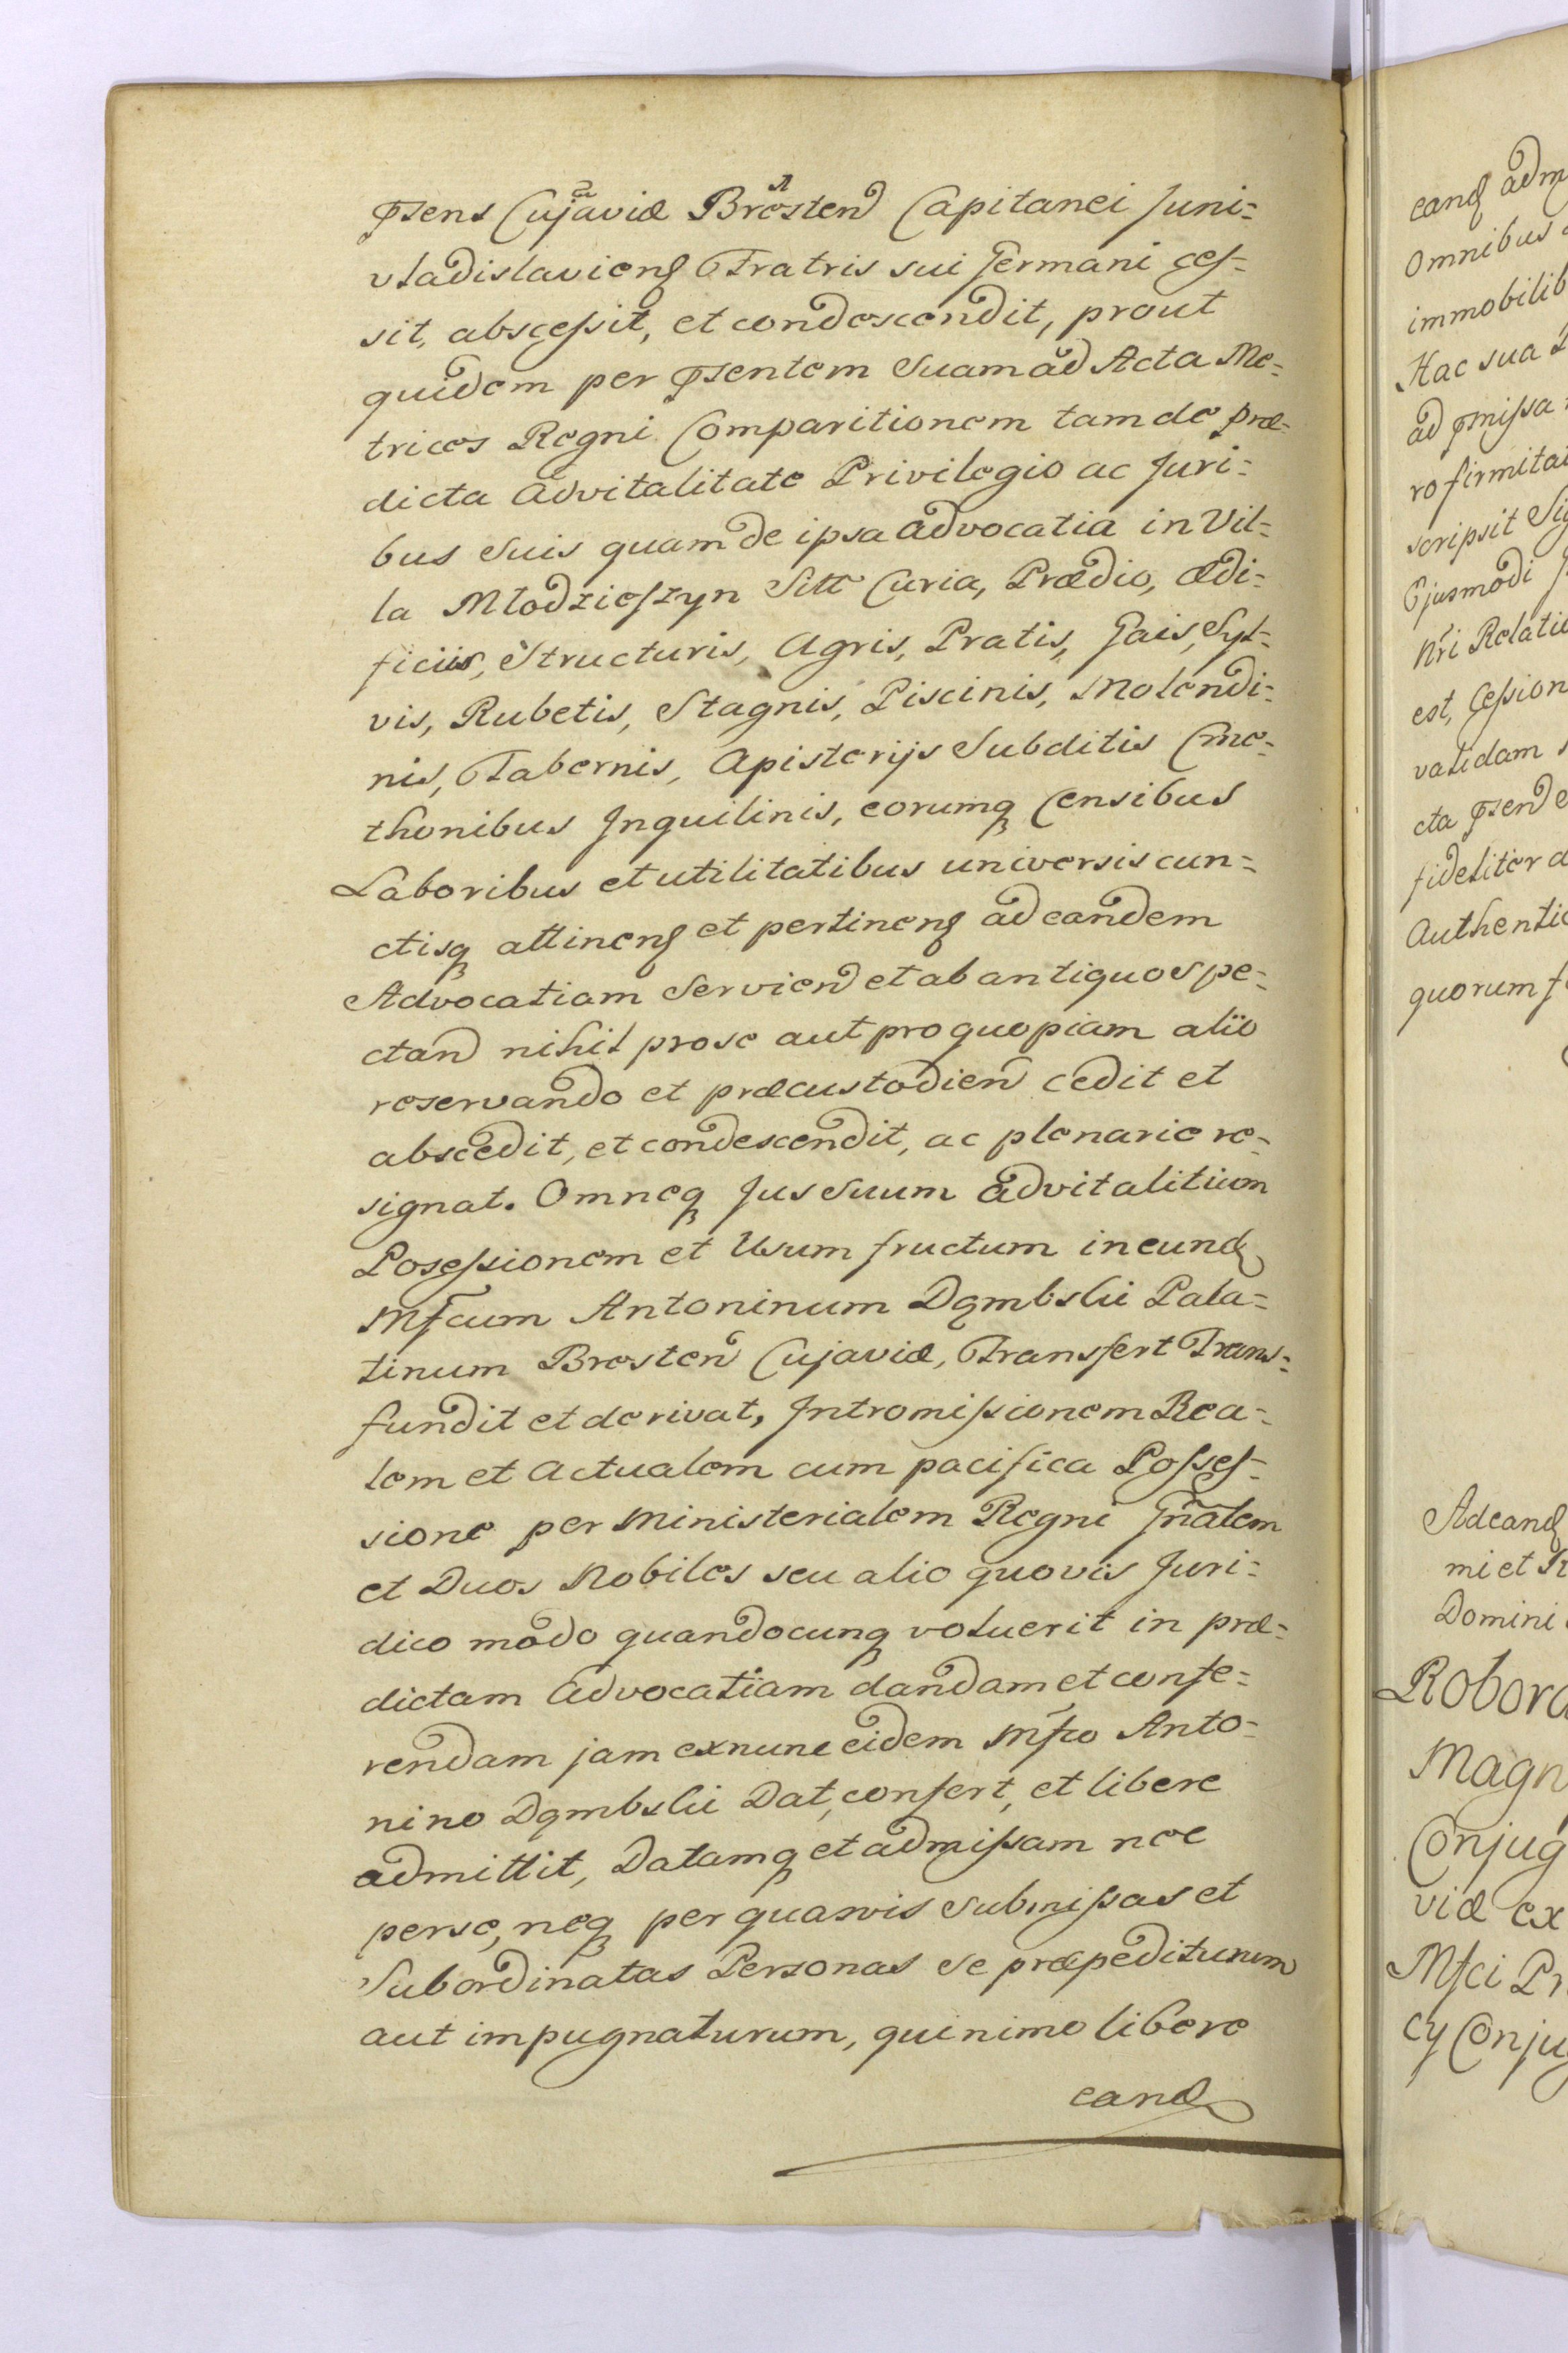 Psens Cujaviæ Brestens Capitanei Juni-
vladislaviens Fratris sui Germani ces-
sit, abscessit, et condescendit, prout
quidem per Psentem Suam ad Acta Me-
trices Regni Comparitionem tam de præ-
dicta Advitalitate Privilegio ac Juri-
bus Suis quam de ipsa advocatia in Vil-
la Młodzieszyn Sitt Curia, Prædio, ædi-
ficiis, Structuris, Agris, Pratis, Gais, Syl-
vis, Rubetis, Stagnis, Piscinis, Molendi-
nis, Tabernis, Apisterijs Subditis Cme-
thonibus Inquilinis, eorumq Censibus
Laboribus et utilitatibus universis cun-
ctisq attinens et pertinens ad eandem
Advocatiam Servien et ab antiquo Spe-
ctan nihil pro se aut pro quopiam alio
reservando et præcustodien cedit et
abscedit, et condescendit, ac plenarie re-
signat. Omneq Jus Suum advitalitium
Posessionem et Usum fructum in eund
Mfcum Antoninum Dąmbski Pala-
tinum Bresten Cujaviæ, Transfert Trans-
fundit et derivat, Intromissionem Rea-
lem et Actualem cum pacifica Posses-
sione per Ministerialem Regni Gnalem
et Duos Nobiles seu alio quovis Juri-
dico modo quandocunq voluerit in præ-
dictam Advocatiam dandam et confe-
rendam jam exnunc eidem Mfco Anto-
nino Dąmbski Dat, confert, et libere
admittit, Datamq et admissam nec
per se, neq per quasvis Submissas et
Subordinatas Personas se præpediturum
aut impugnaturum, quinimo libere
eand
eand adm
Omnibus
immobilib
Hac sua
ad pmissa
ro firmita
scripsit Sig
Ejusmodi
Nri Relati
est, Cession
validam
cta psen e
fideliter
Authentic
quorum f
Ad eand
mi et
Domini
Robora
Magn
Conjug
viæ ex
Mfci Pr
cy Conju